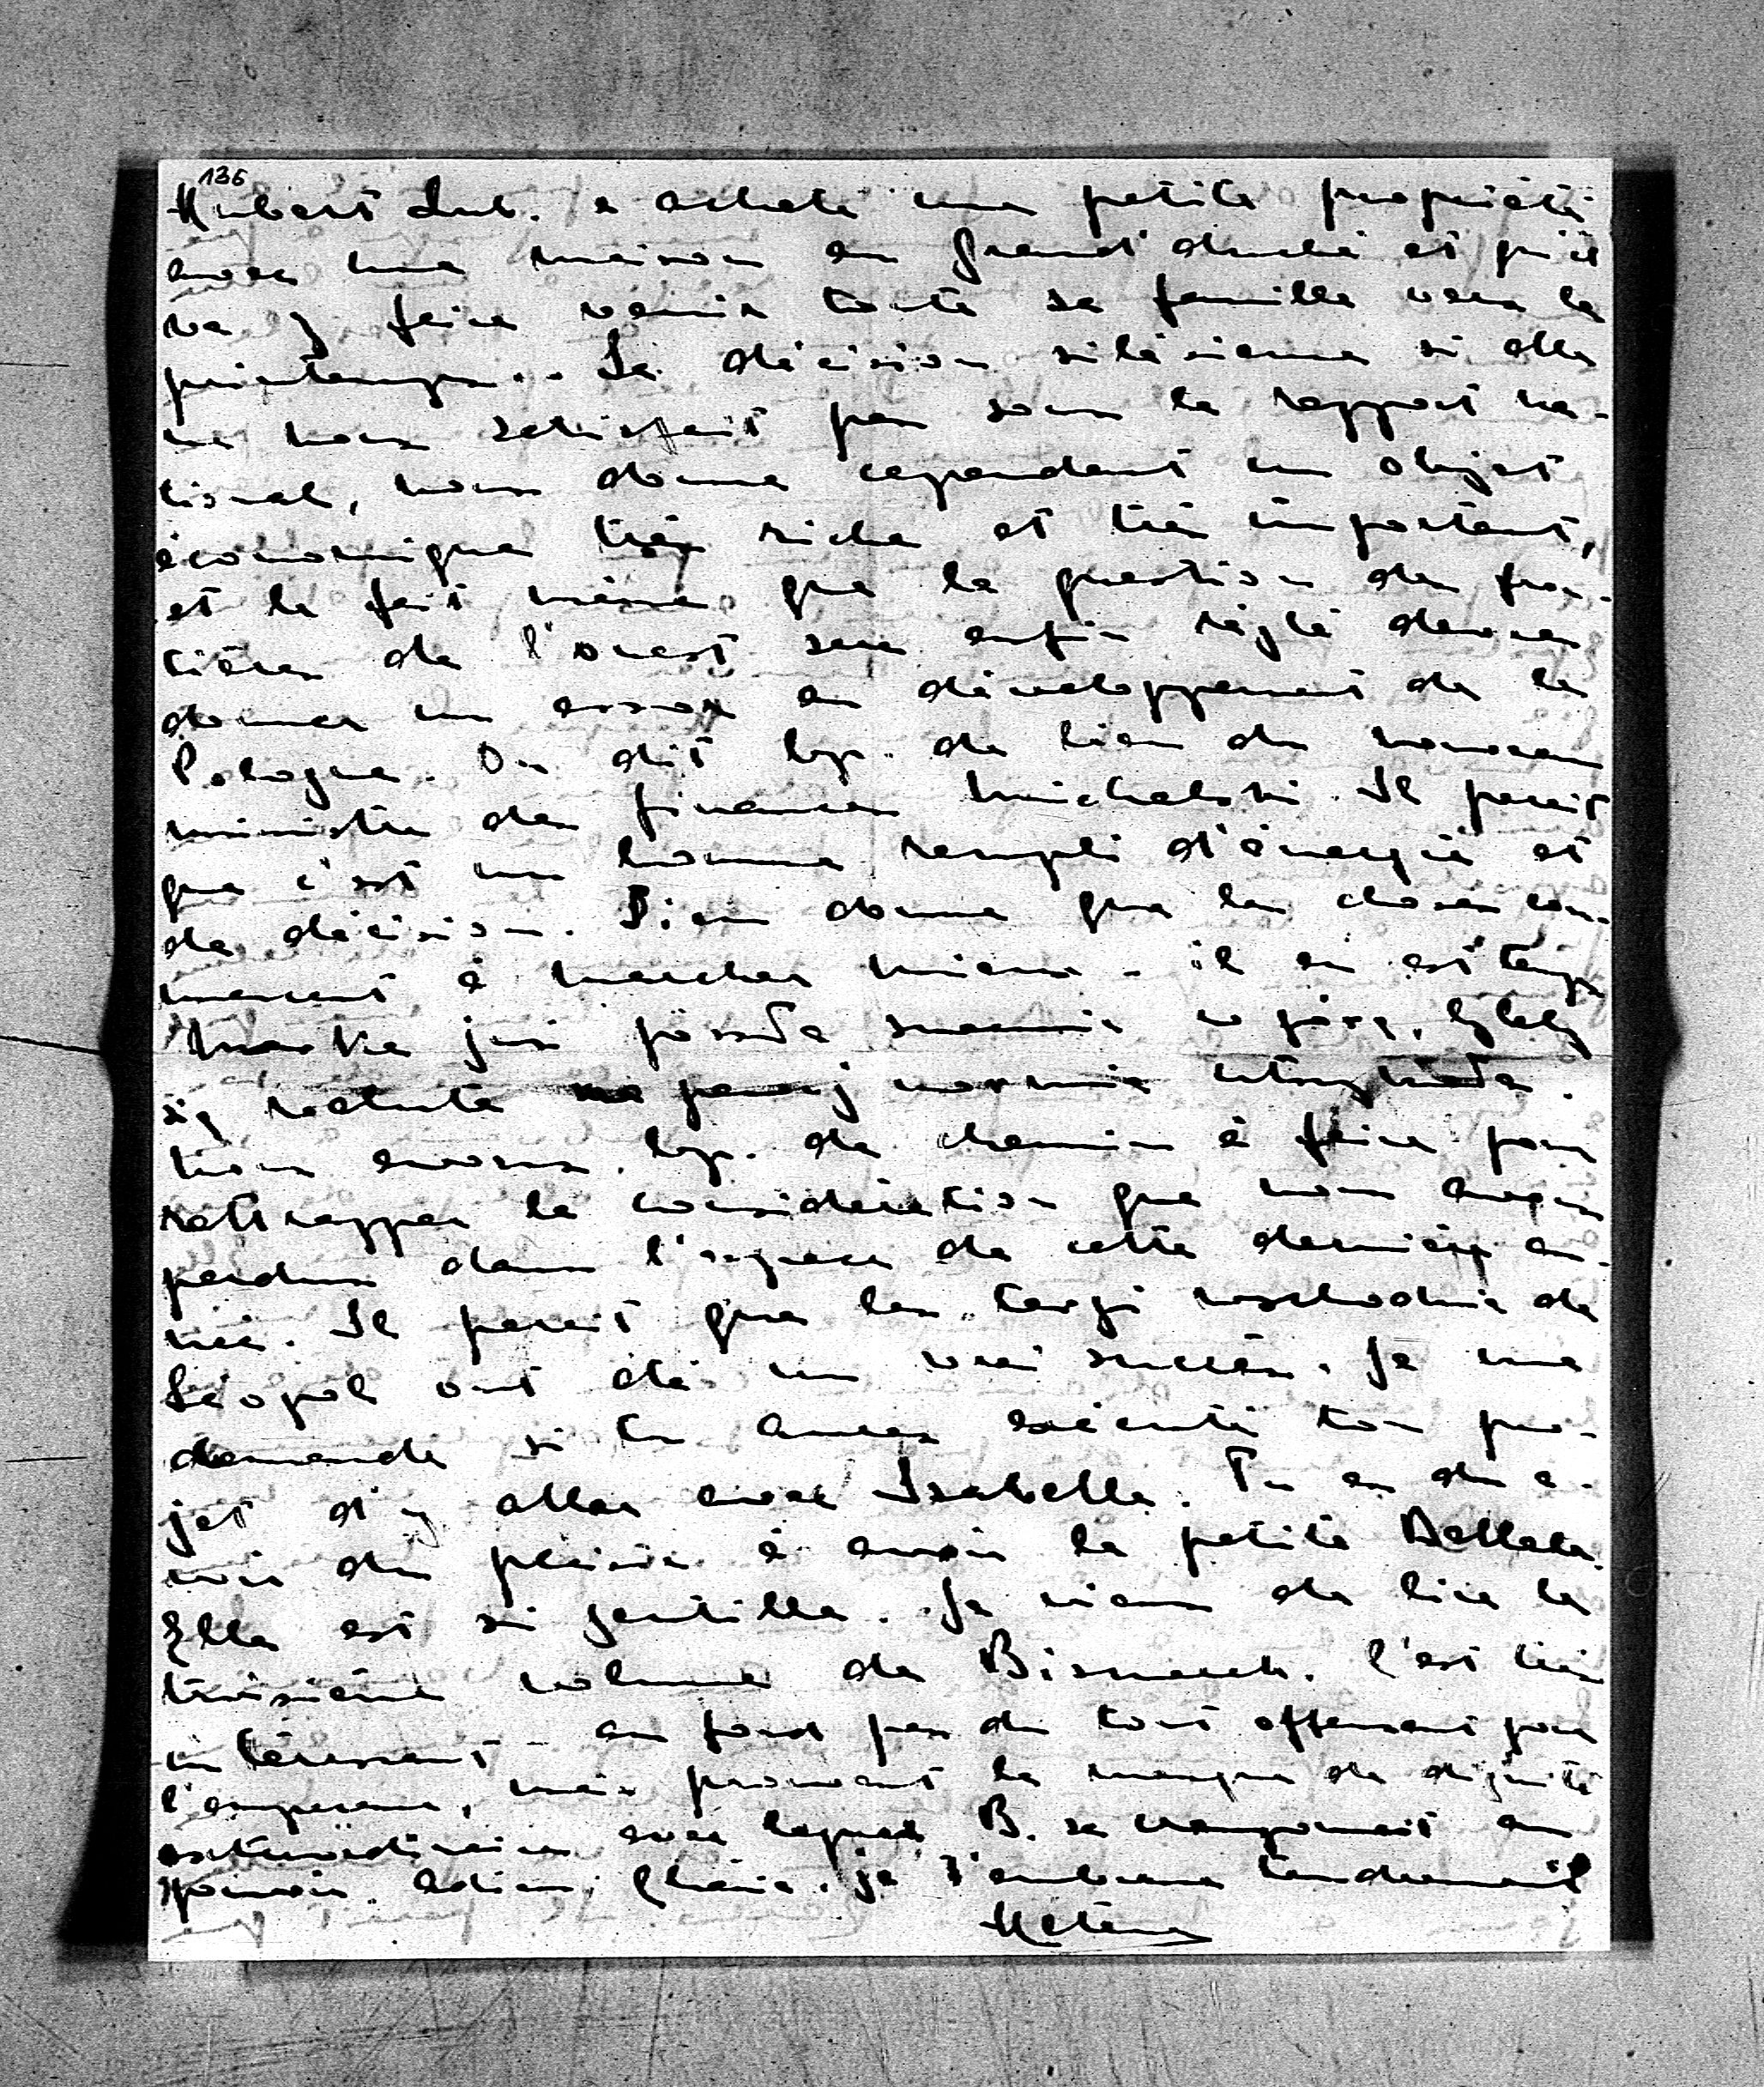 136
Hubert Lub. a acheté une petite propriété
avec une maison en Grand'duché et qu'il
va y faire venir toute sa famille vers le
printemps.. La décision silésienne si elle
ne nous satisfait pas sous le rapport na-
tional, nous donne cependant un objet
économique très riche et très important,
et le fait même que la question des fron-
tières de l'ouest sera enfin réglé devra
donner un essor au développement de la
Pologne. On dit bcp. de bien du nouveau
ministre des finances Michalski. Il parait
que c'est un homme rempli d'énergie et
de décision. Dieu donne que les choses com-
mencent à marcher mieux - il en est temps
Marka już poszła znacznie w górę, byleby
się raduta na pewnej normie utrzymała.
Nous avons bcp. de chemin à faire pour
rattrapper la considération que nous avons
perdus dans l'espace de cette dernière an-
née. Il parait que les targi wschodnie de
Léopol ont été un vrai succès. Je me
demande si tu auras exécuté ton pro-
jet d'y aller avec Isabelle. Tu as du a-
voir du plaisir à avoir la petite
Elle est si gentille. Je viens de lire le
troisième volume de Bismarck. C'est très
intéressant - au fond pas du tout offensant pour
l'empereur, mais prouvant le manque de dignité
extraordinaire avec lequel B. se cramponnait au
pouvoir. Adieu, Chérie. je t'embrasse tendrement
Hélène